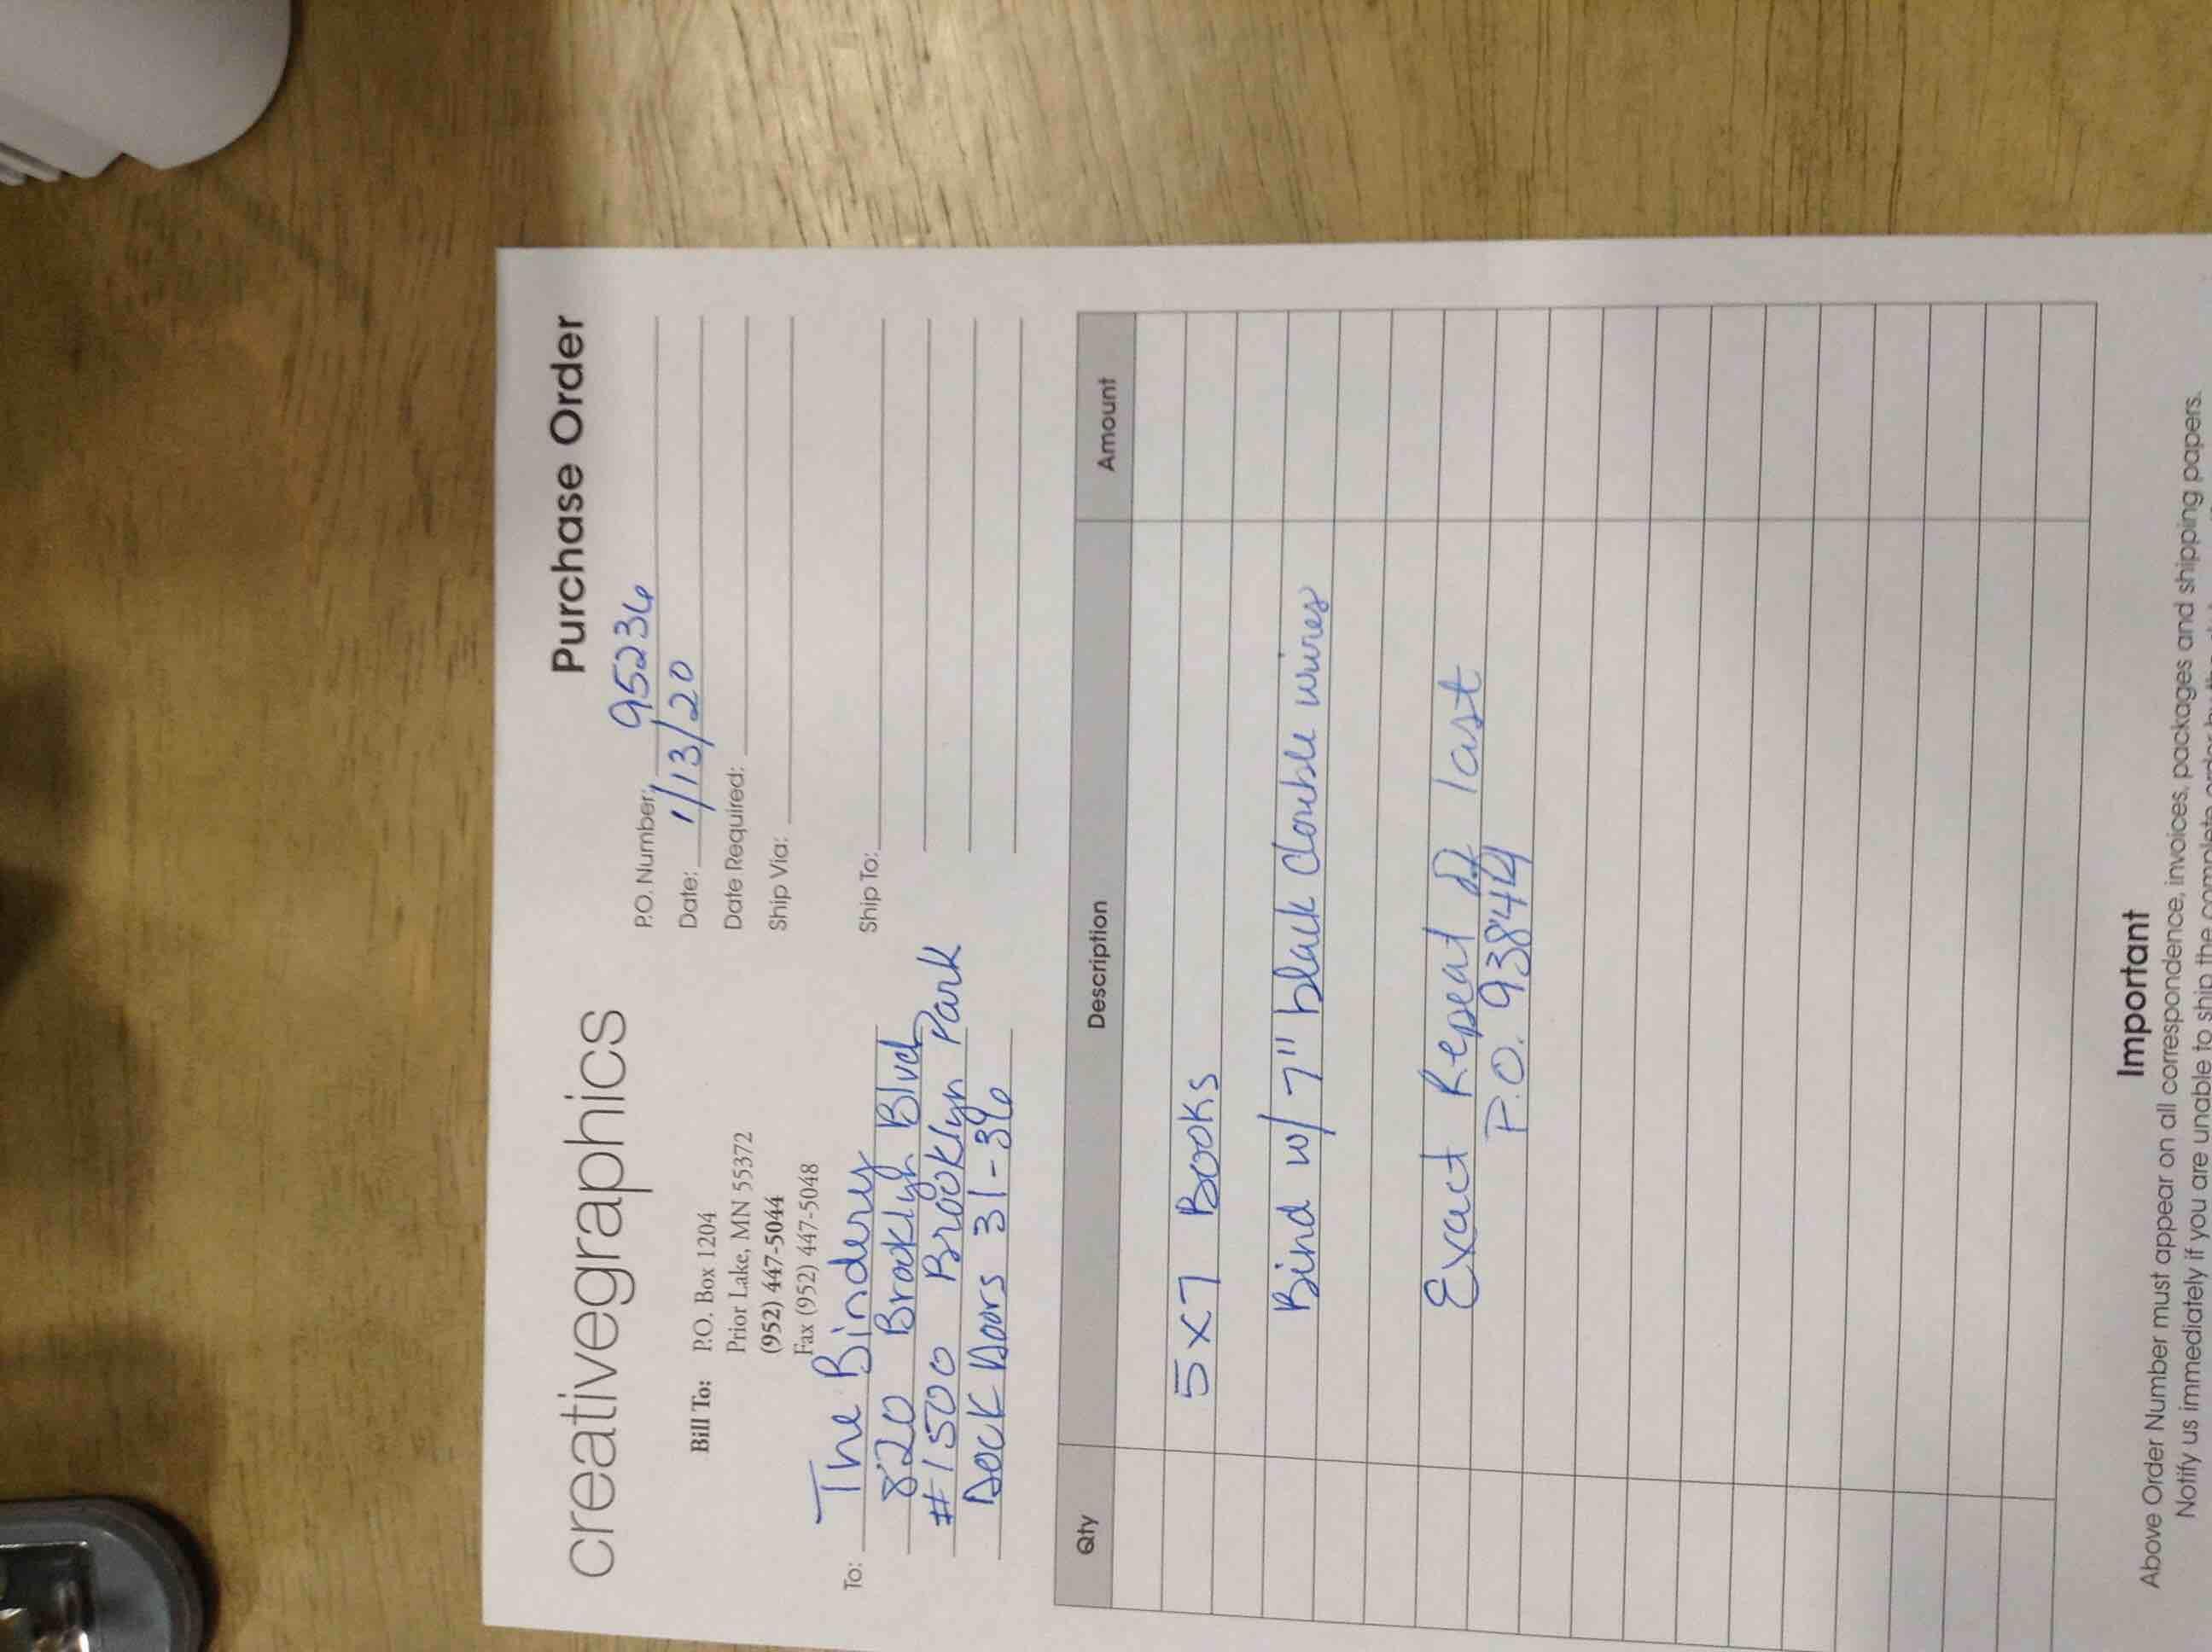 creativegraphics
Purchase Order
Bill To: P.O. Box 1204
Prior Lake, MN 55372
(952) 447-5044
Fax (952) 447-5048
P.O. Number: 95236
Date: 1/13/20
Date Required:
Ship Via:
To: The Bindery
820 Brooklyn Blvd
#1500 Brooklyn Park
Dock Doors 31-36
Ship To:
Qty Description Amount
5x7 Books
Bind w/ 7" black double wires
Exact Repeat of last
P.O. 93844
Important
Above Order Number must appear on all correspondence, invoices, packages and shipping papers.
Notify us immediately if you are unable to ship the complete order